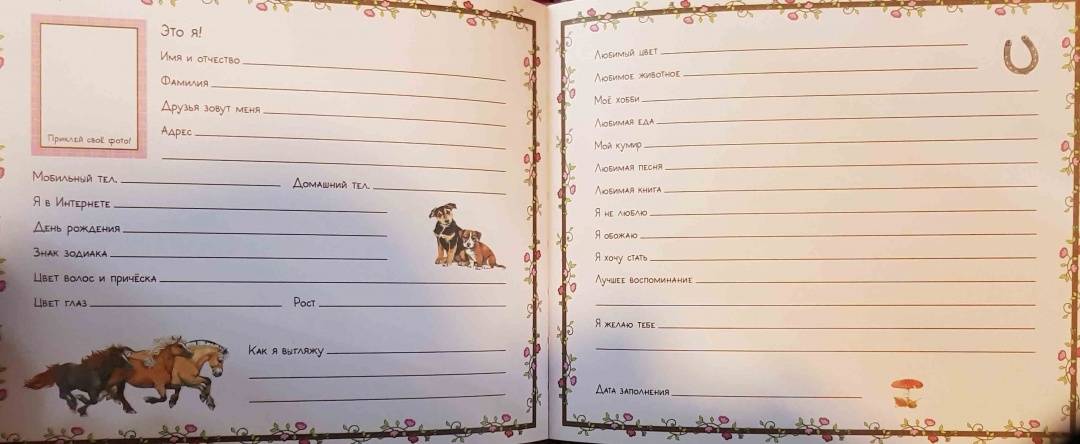 Это я!
Имя и отчество
Фамилия
Друзья зовут меня
Адрес
Приклей своё фото!
Мобильный тел. Домашний тел.
Я в Интернете
День рождения
Знак зодиака
Цвет волос и причёска
Цвет глаз Рост
Как я выгляжу
Любимый цвет
Любимое животное
Моё хобби
Любимая еда
Мой кумир
Любимая песня
Любимая книга
Я не люблю
Я обожаю
Я хочу стать
Лучшее воспоминание
Я желаю тебе
Дата заполнения